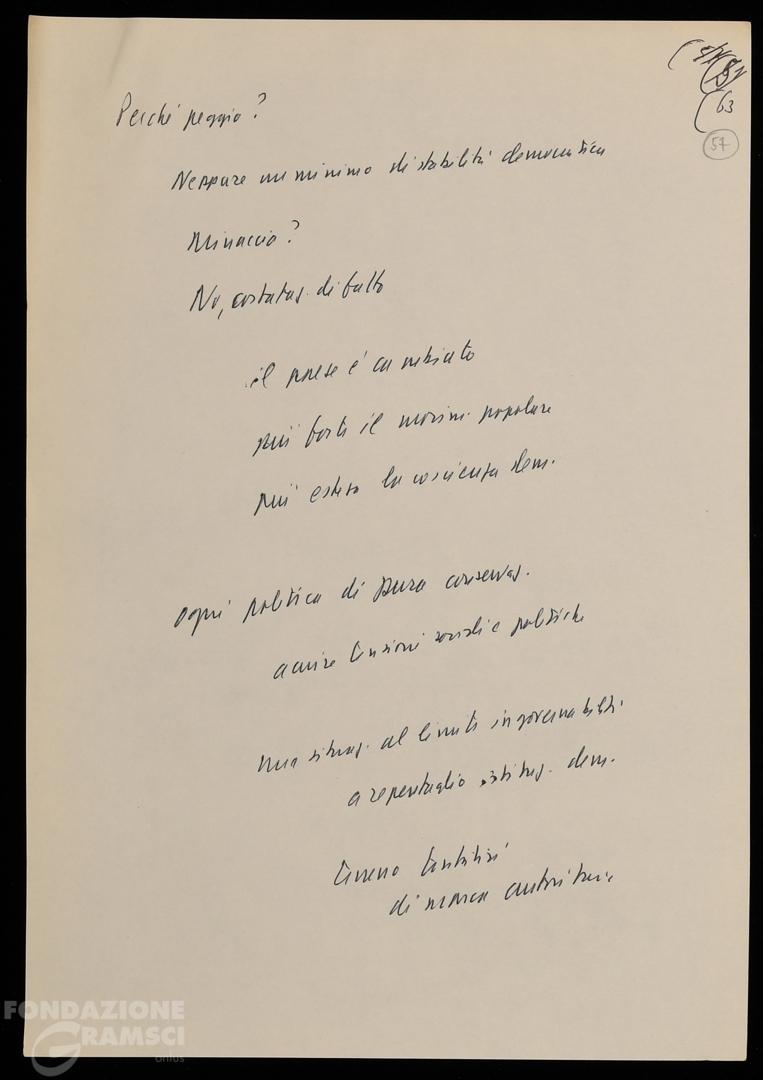 63
57
Perché peggio?
Neppure un minimo di stabilità democratica
Minaccia?
No, costataz. di fatto
il paese è cambiato
più forte il movim. popolare
più estesa la coscienza dem.
Ogni politica di pura conservaz.
acuisce tensioni sociali e politiche
Una situaz. al limite ingovernabilità
a repentaglio istituz. dem.
terreno tentativi
di marca autoritaria
FONDAZIONE
GRAMSCI
onlus